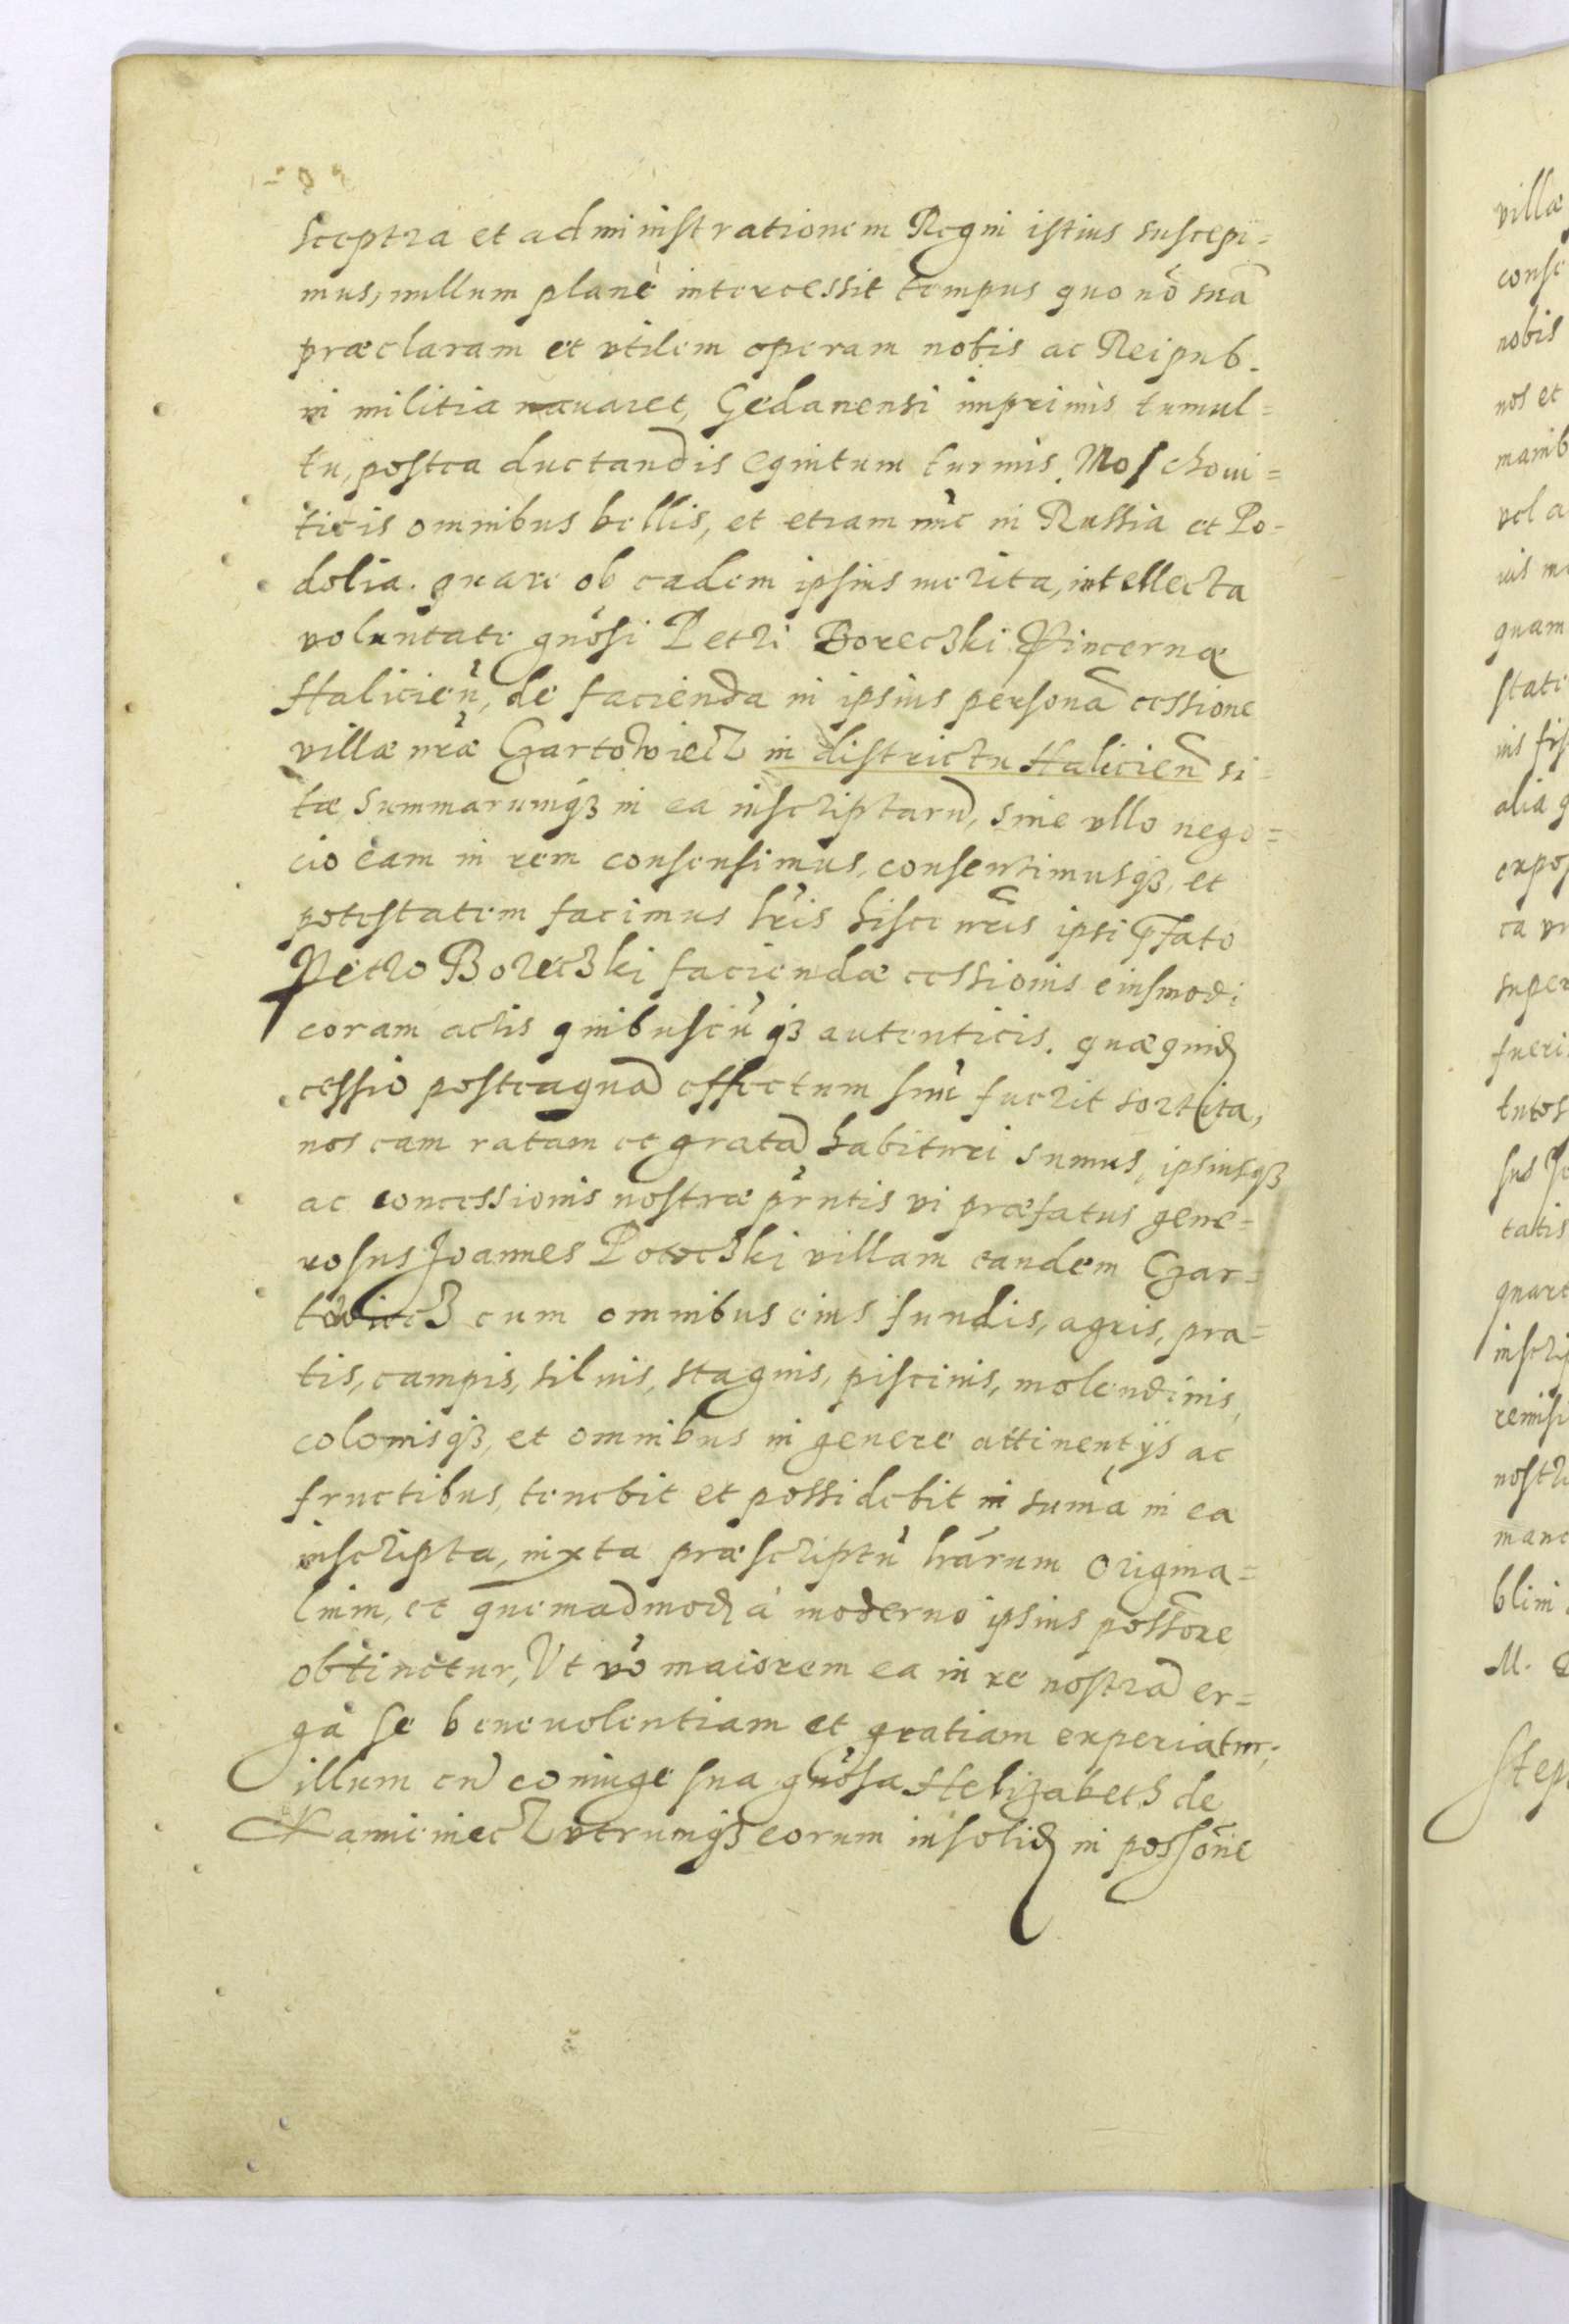 sceptra et administrationem Regni istius suscepi=
mus, nullum planè intercessit tempus quo nõ suã
præclaram et vtilem operam nobis ac Reipub.
in militia nauaret, Gedanensi imprimis tumul=
tu, postea ductandis equitum turmis. Moschoui=
ticis omnibus bellis, et etiam nũc in Russia et Po-
dolia. quare ob eadem ipsius merita, intellecta
voluntate gnõsi Petri Boreczki Pincernæ
Halicien̄, de facienda in ipsius personã cessione
villæ nr̃æ Czartowiecz in districtu Halicien̄ si=
tæ, summarumqȝ in ea inscriptarũ, sine vllo nego=
cio eam in rem consensimus, consentimusqȝ, et
potestatem facimus lr̃is hisce nr̃is ipsi p̃fato
Petro Boreczki faciendæ cessionis eiusmodi
coram actis quibuscũqȝ autenticis. quæquid̃
cessio posteaquã effectum suũ fuerit sortita,
nos eam ratam et gratã habituri sumus, ipsiusqȝ
ac concessionis nostræ pr̃ntis vi præfatus gene=
rosus Joannes Potoczki villam eandem Czar=
towiecz cum omnibus eius fundis, agris, pra=
tis, campis, siluis, stagnis, piscinis, molendinis,
colonisqȝ, et omnibus in genere attinentijs ac
fructibus, tenebit et possidebit in sum̃a in ea
inscripta, iuxta præscriptũ lr̃arum origina=
lium, et quemadmod̃ à moderno ipsius poss̃ore
obtinetur, Vt vō maiorem ea in re nostrã er=
ga se beneuolentiam et gratiam experiatur;
illum cũ coniuge sua gnõsa Helizabeth de
Kamieniecz vtrumqȝ eorum insolid̃ in possõne